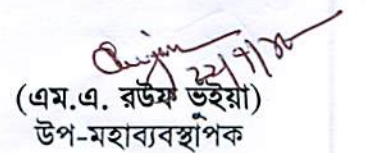 (এম.এ. রউফ ভূইয়া)
উপ-মহাব্যবস্থাপক